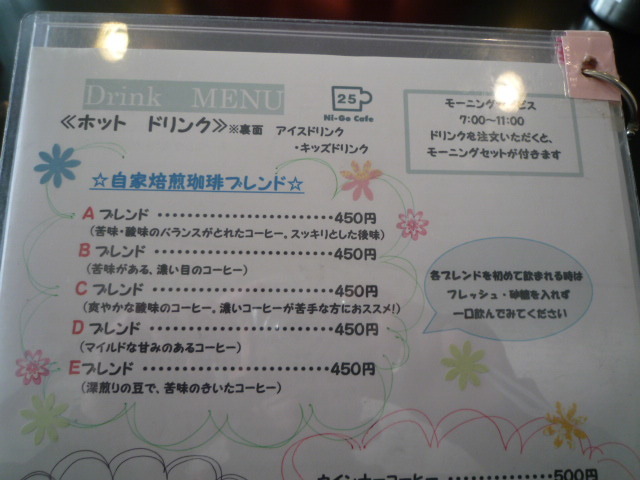 Drink MENU
25
Ni-Go Cafe
≪ホット ドリンク≫※裏面 アイスドリンク
・キッズドリンク
モーニングサービス
7:00～11:00
ドリンクを注文いただくと、
モーニングセットが付きます
☆自家焙煎珈琲ブレンド☆
A ブレンド ・・・・・・・・・・・・・・・・・・・・・・・450円
(苦味・酸味のバランスがとれたコーヒー。スッキリとした後味)
B ブレンド ・・・・・・・・・・・・・・・・・・・・・・・450円
(苦味がある、濃い目のコーヒー)
C ブレンド ・・・・・・・・・・・・・・・・・・・・・・・450円
(爽やかな酸味のコーヒー。濃いコーヒーが苦手な方におススメ!)
D ブレンド ・・・・・・・・・・・・・・・・・・・・・・・450円
(マイルドな甘みのあるコーヒー)
Eブレンド ・・・・・・・・・・・・・・・・・・・・・・・450円
(深煎りの豆で、苦味のきいたコーヒー)
各ブレンドを初めて飲まれる時は
フレッシュ・砂糖を入れず
一口飲んでみてください
ウインナーコーヒー ・・・・・・・・・・・・・500円